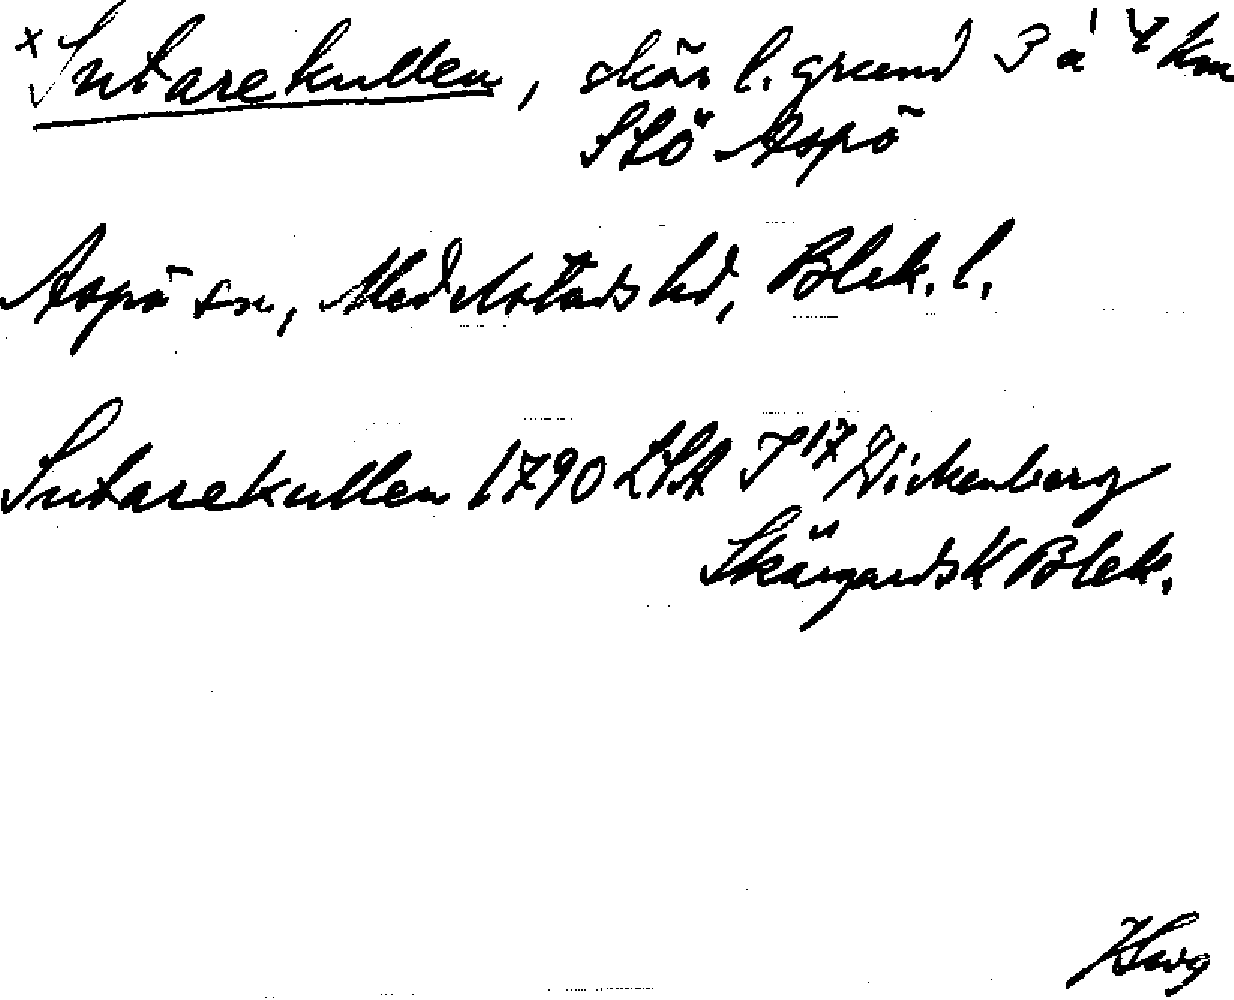 x Sutarekullen, skär l. grund 3 à 4 km
SSö Aspö
Aspö sn, Medelstads hd, Blek. l.
Sutarekullen 1790 LSA I 17 Wickenberg
Skärgårds K Blek.